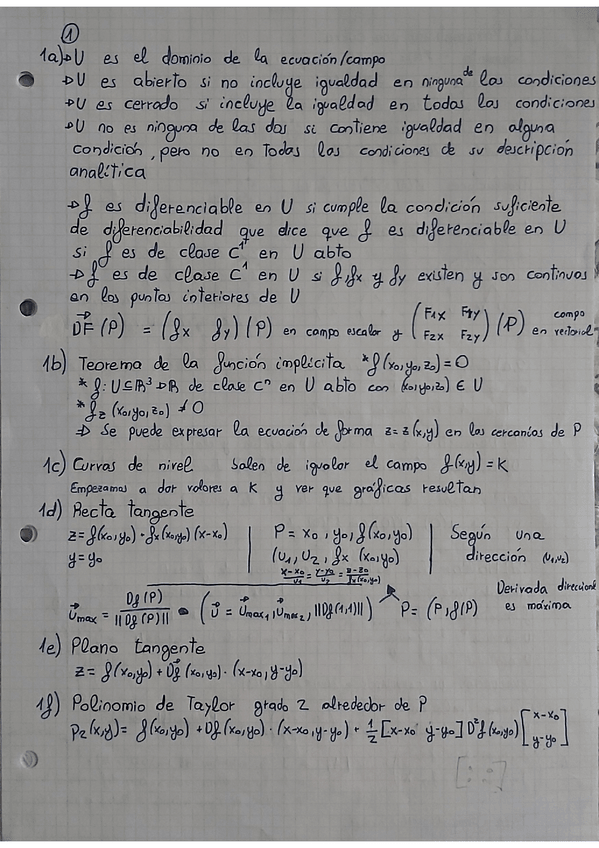 ①
1a) → U es el dominio de la ecuación/campo
→ U es abierto si no incluye igualdad en ninguna de las condiciones
→ U es cerrado si incluye la igualdad en todas las condiciones
→ U no es ninguna de las dos si contiene igualdad en alguna
condición, pero no en todas las condiciones de su descripción
analítica
→ f es diferenciable en U si cumple la condición suficiente
de diferenciabilidad que dice que f es diferenciable en U
si f es de clase C¹ en U abto
→ f es de clase C¹ en U si f, fx y fy existen y son continuas
en los puntos interiores de U
DF⃗ (P) = (fx fy)(P) en campo escalar y (F1x F1y / F2x F2y)(P) campo en vectorial
1b) Teorema de la función implícita * f(x₀,y₀,z₀)=0
* f: U⊆ℝ³→ℝ de clase Cⁿ en U abto con (x₀,y₀,z₀) ∈ U
* fz (x₀,y₀,z₀) ≠ 0
→ Se puede expresar la ecuación de forma z=z(x,y) en las cercanías de P
1c) Curvas de nivel Salen de igualar el campo f(x,y)=K
Empezamos a dar valores a K y ver que gráficas resultan
1d) Recta tangente
z=f(x₀,y₀)+fx(x₀,y₀)(x-x₀) | P = x₀, y₀, f(x₀,y₀) | Según una
y=y₀ | (u₁, u₂, fx (x₀,y₀) | dirección (u₁,u₂)
(x-x₀)/u₁ = (y-y₀)/u₂ = (z-z₀)/fu(x₀,y₀)
u⃗max = Df(P)/||Df(P)|| • (u⃗ = u⃗max₁, u⃗max₂, ||Df(1,1)||) P=(P,f(P)) Derivada direccional es máxima
1e) Plano tangente
z= f(x₀,y₀)+Df⃗(x₀,y₀)·(x-x₀,y-y₀)
1f) Polinomio de Taylor grado 2 alrededor de P
P₂(x,y)= f(x₀,y₀)+Df(x₀,y₀)·(x-x₀,y-y₀)+ 1/2 [x-x₀ y-y₀] D²f(x₀,y₀) [x-x₀ / y-y₀]